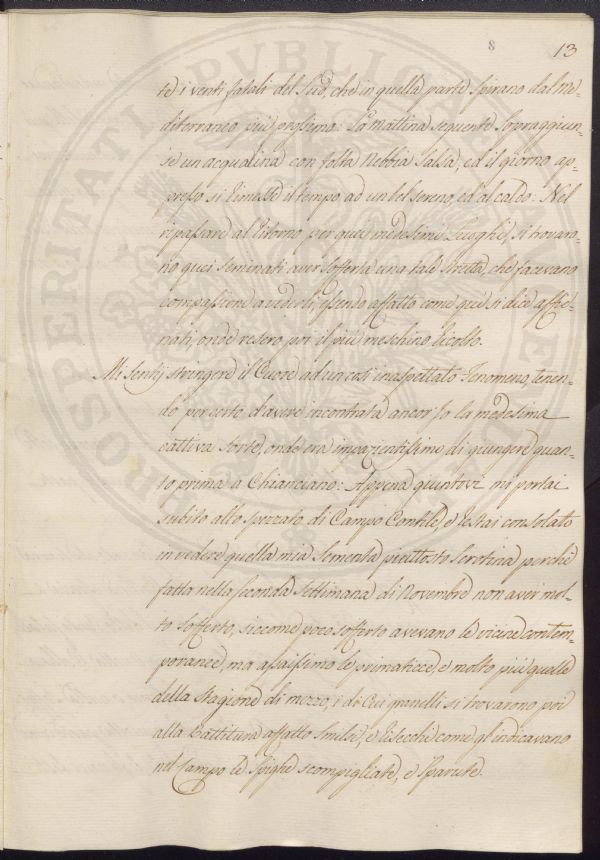 8 13
te i venti fatali del Sud, che in quella parte spirano dal Me-
diterraneo più prossimo: La mattina seguente sopraggiun-
se un acqualina con folta nebbia salsa, ed il giorno ap-
presso si rimesse il tempo ad un bel sereno, ed al caldo. Nel
ripassare al ritorno per quei medesimi Luoghi, si trovaro-
no quei seminati aver sofferta una tale stretta, che facevano
compassione a vederli, essendo affatto come quì si dice affie-
nati, onde resero poi il più meschino ricolto.
Mi sentij stringere il Cuore ad un così inaspettato Fenomeno, tenen-
do per certo d'avere incontrata ancor Io la medesima
cattiva sorte, onde era impazientissimo di giungere quan-
to prima a Chianciano: Appena giuntovi mi portai
subito allo spezzato di Campo Gentile, e restai consolato
in vedere quella mia sementa piuttosto serotina perchè
fatta nella seconda settimana di Novembre non aver mol-
to sofferto, siccome poco sofferto avevano le vicine contem-
poranee, ma assaissimo le primaticce, e molto più quelle
della stagione di mezzo, i di cui granelli si trovarono poi
alla Battitura affatto smilzi, e risecchi come gl'indicavano
nel Campo le spighe scompigliate, e sparute.
PROSPERITATI PVBLICAE